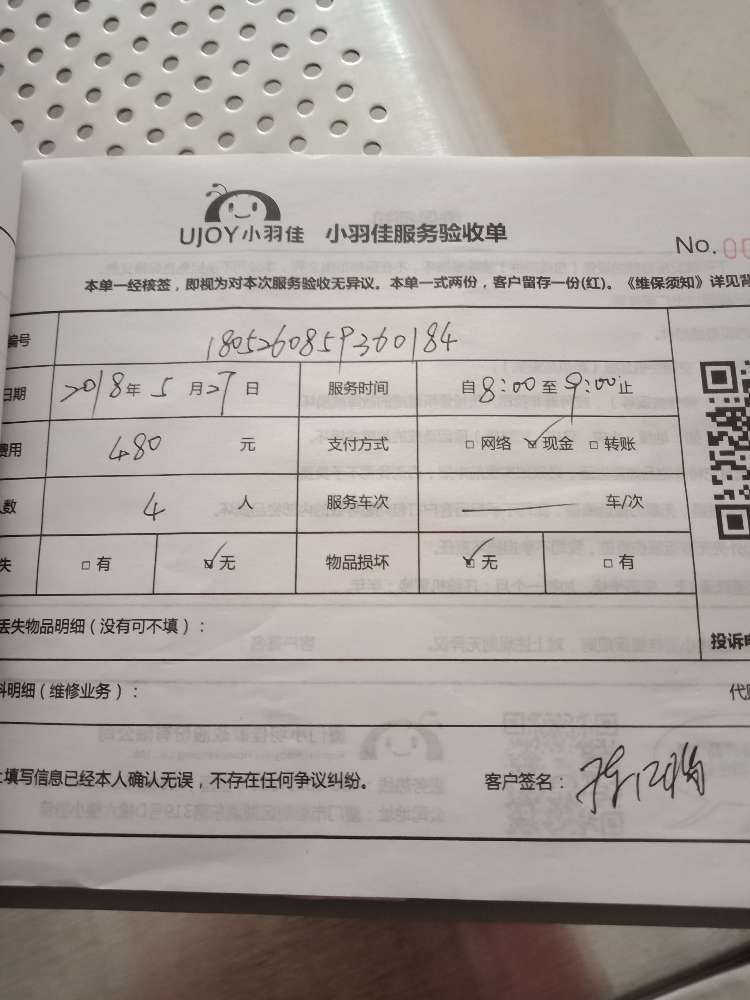 UJOY小羽佳 小羽佳服务验收单
No. 00
本单一经核签，即视为对本次服务验收无异议。本单一式两份，客户留存一份(红)。《维保须知》详见背
编号 1805260859360184
日期 2018年 5 月27日 服务时间 自8:00至9:00止
费用 480 元 支付方式 □网络 ☑现金 □转账
人数 4 人 服务车次 车/次
失 □有 ☑无 物品损坏 ☑无 □有
丢失物品明细（没有可不填）：
投诉电
料明细（维修业务）：
代贩
上填写信息已经本人确认无误，不存在任何争议纠纷。 客户签名：